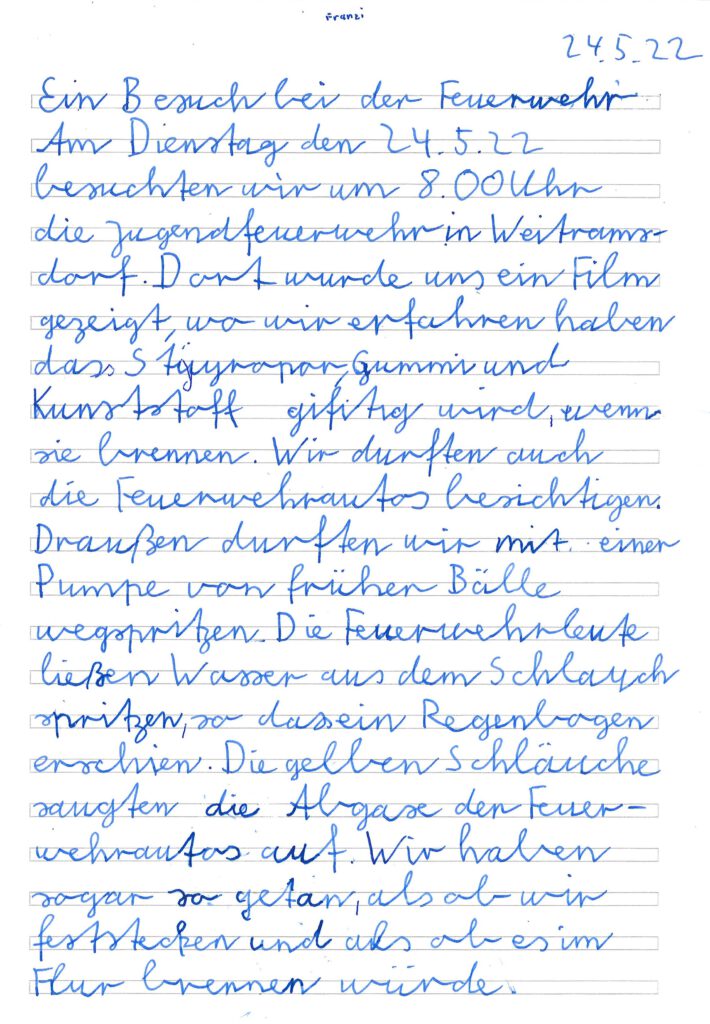 Franzi
24.5.22
Ein Besuch bei der Feuerwehr
Am Dienstag den 24.5.22
besuchten wir um 8.00 Uhr
die Jugendfeuerwehr in Weitrams-
dorf. Dort wurde uns ein Film
gezeigt, wo wir erfahren haben
dass Styuropor, Gummi und
Kunststoff gifitig wird, wenn
sie brennen. Wir durften auch
die Feuerwehrautos besichtigen.
Draußen durften wir mit einer
Pumpe von früher Bälle
wegspritzen. Die Feuerwehrleute
ließen Wasser aus dem Schlauch
spritzen, so dass ein Regenbogen
erschien. Die gelben Schläuche
saugten die Abgase der Feuer-
wehrautos auf. Wir haben
sogar so getan, als ob wir
feststecken und als ob es im
Flur brennen würde.